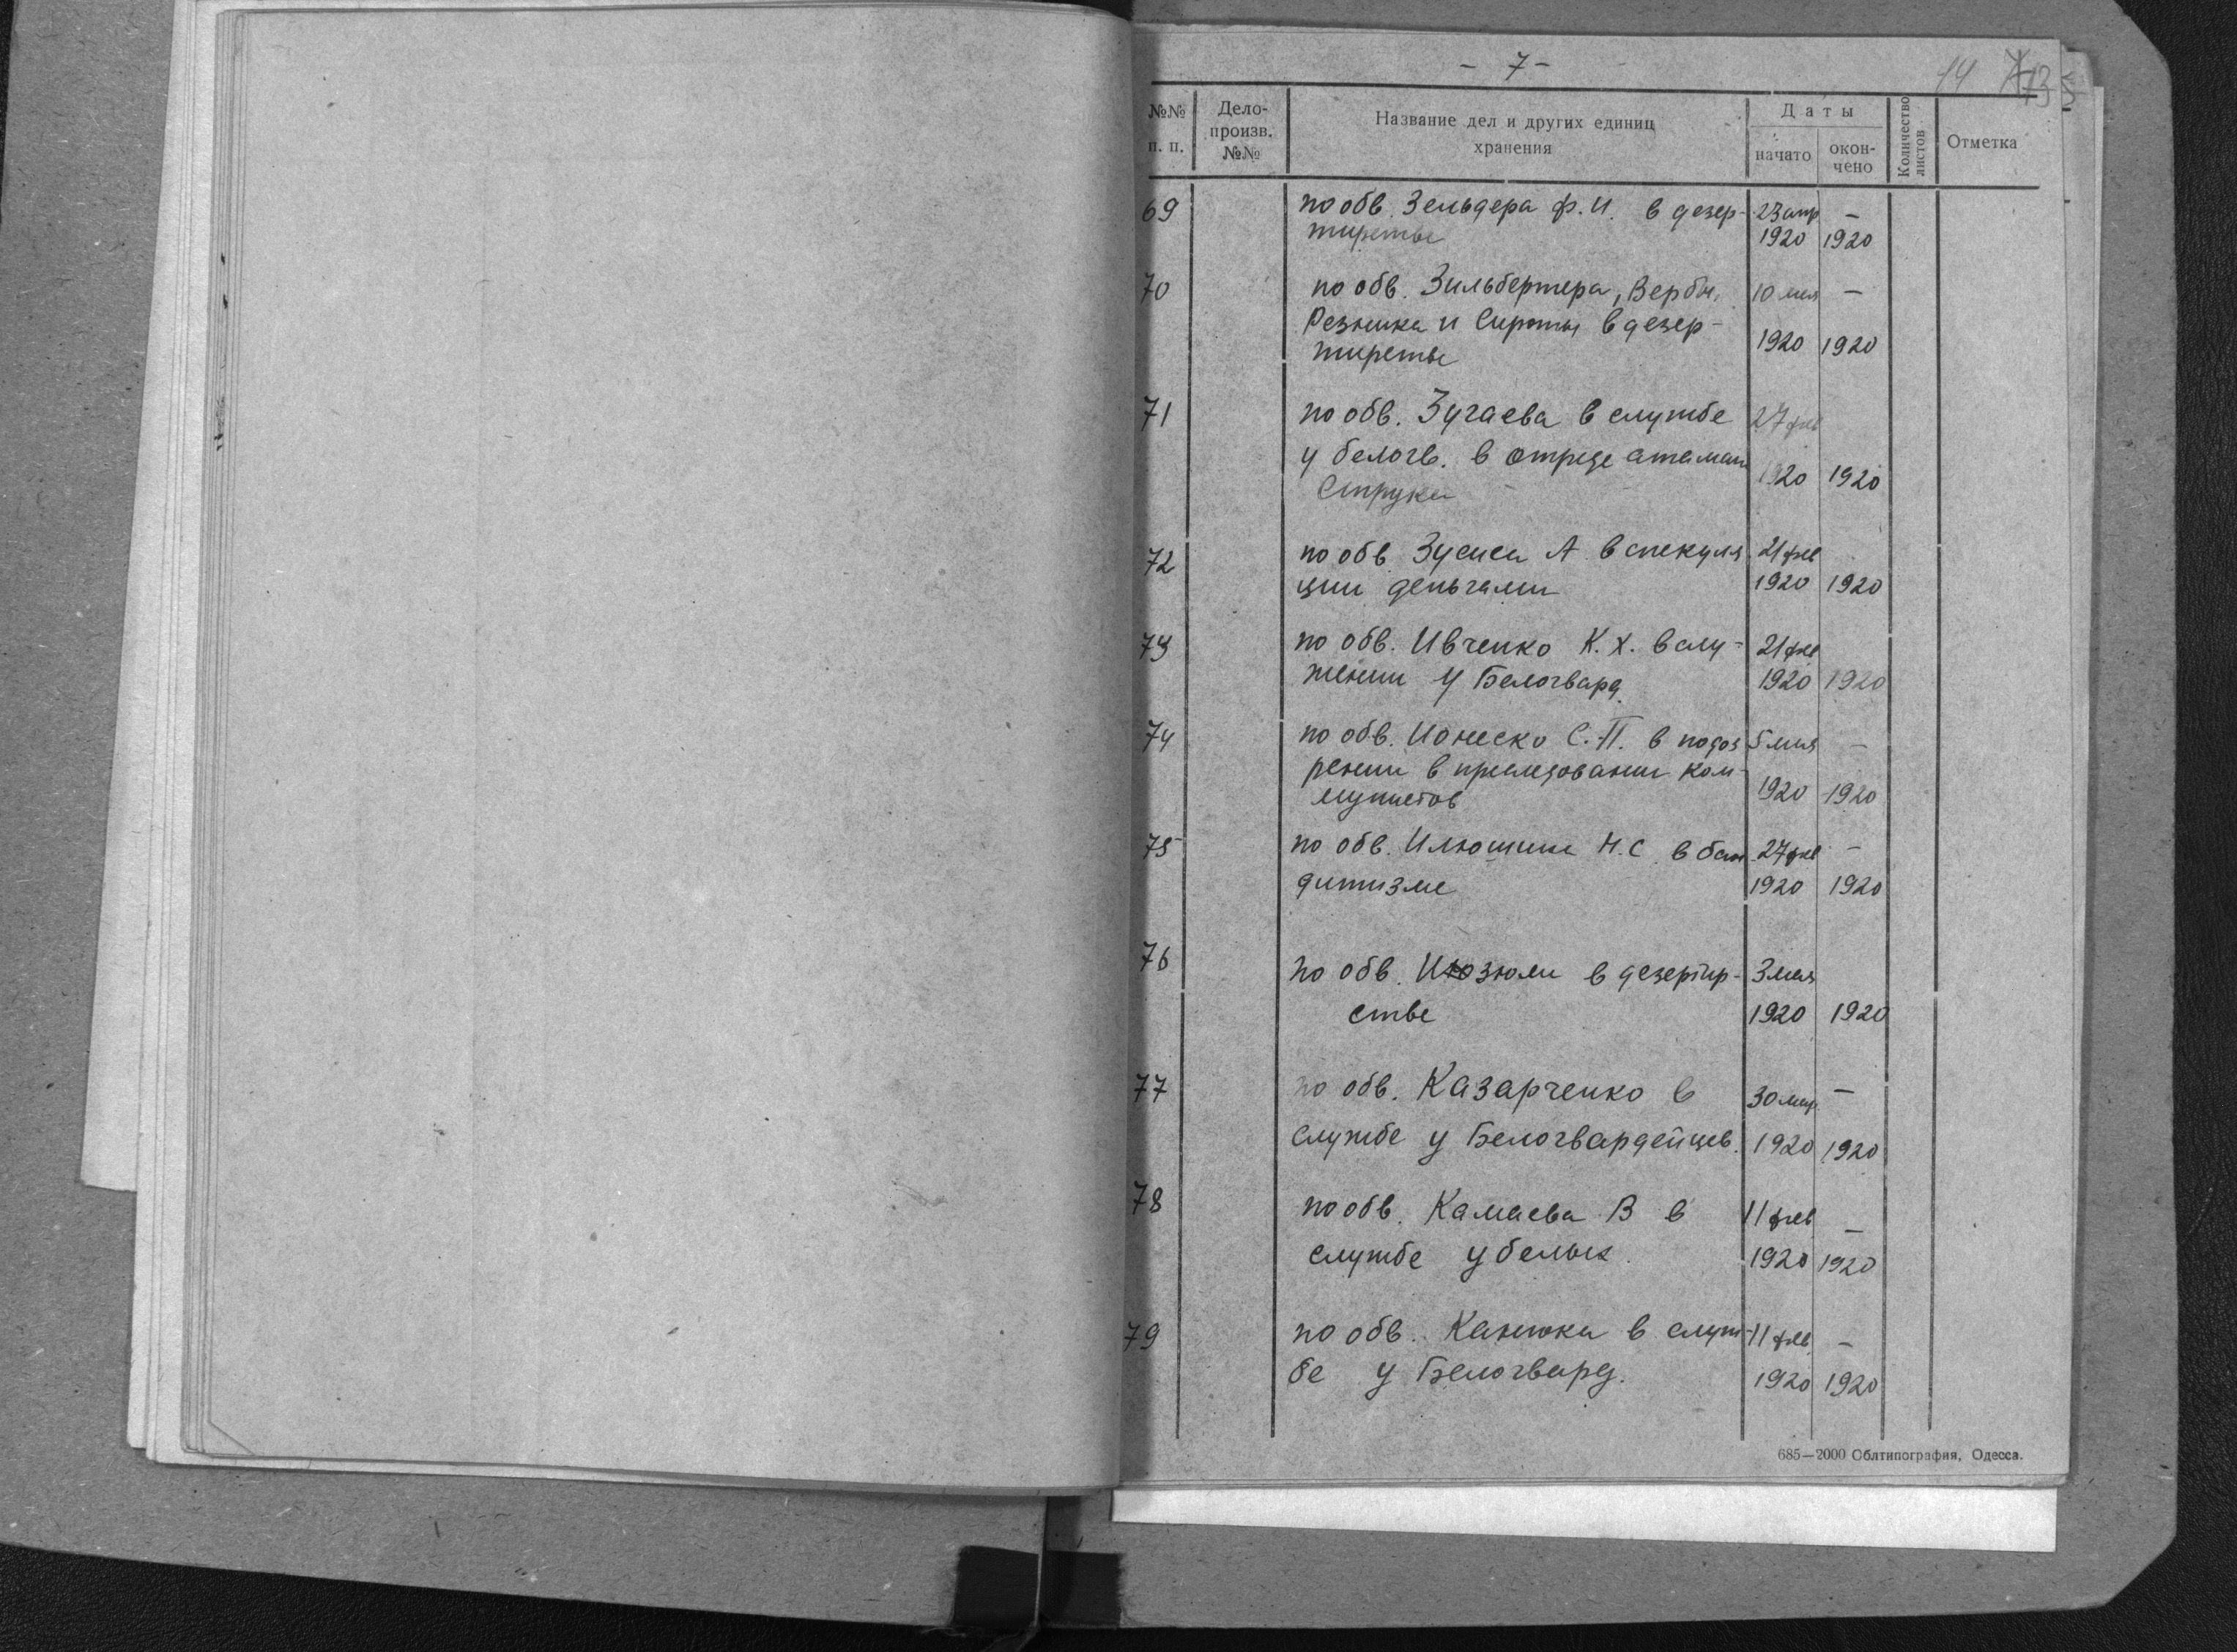 - 7 -
14
№№ п. п.
Дело-произв. №№
Название дел и других единиц хранения
Даты
начато
окон-чено
Количество листов
Отметка
69 по обв. Зельдера Ф.И. в дезер- 23 апр –
тирстве 1920 1920
70 по обв. Зильбертера, Вербы, 10 мая –
Резника и Сироты в дезер- 1920 1920
тирстве
71 по обв. Зугаева в службе 27 фев
у белогв. в отряде атамана 1920 1920
Струка
72 по обв. А в спекуля 21 фев
ции деньгами 1920 1920
73 по обв. Ивченко К.Х. в слу- 21 фев
жении у Белогвард. 1920 1920
74 по обв. Ионеско С.П. в подоз 5 мая –
рении в преследовании ком- 1920 1920
мунистов
75 по обв. Илюшина Н.С. в бан 27 фев –
дитизме 1920 1920
76 по обв. в дезертир- 3 мая
стве 1920 1920
77 по обв. Казарченко в 30 мар –
службе у Белогвардейцев. 1920 1920
78 по обв. Камаева В в 11 фев –
службе у белых. 1920 1920
79 по обв. Канюка в служ- 11 фев –
бе у Белогвард. 1920 1920
685—2000 Облтипография, Одесса.